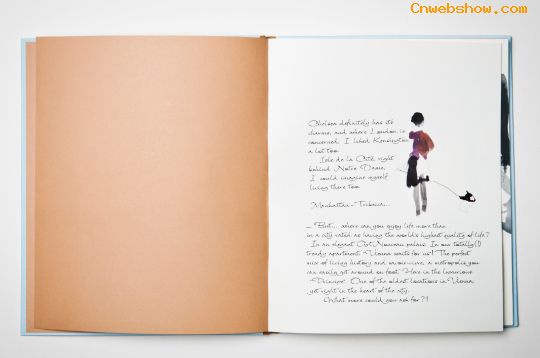 Cnwebshow.com
Chelsea definitely has its
charms, and where London is
concerned, I liked Kensington
a lot too.
Isle de la Cité, right
behind Notre Dame,
I could imagine myself
living there too.
Manhattan - Tribeca...
... But... where can you enjoy life more than
in a city rated as having the world's highest quality of life?
In an elegant Art Nouveau palace. In our totally(!)
trendy apartment. Vienna waits for us! The perfect
mix of living history and savoir-vivre, a metropolis you
can easily get around on foot. Here in the luxurious
One of the oldest locations in Vienna,
yet right in the heart of the city.
What more could you ask for?!